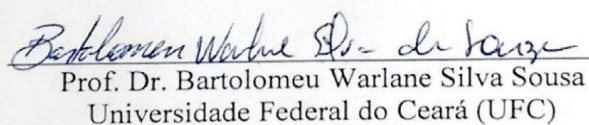 Bartolomeu Warlane Silva de Souza
Prof. Dr. Bartolomeu Warlane Silva Sousa
Universidade Federal do Ceará (UFC)